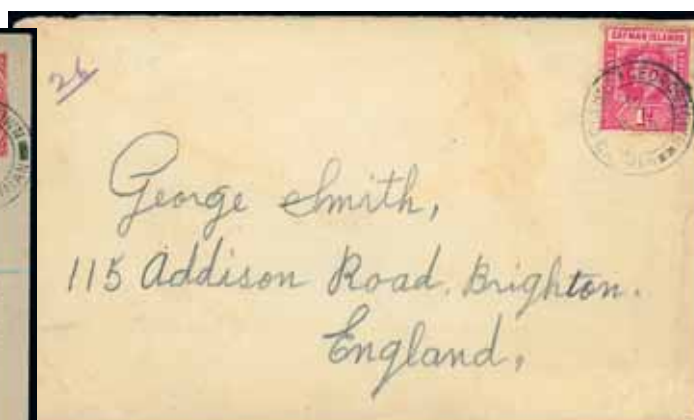 26
CAYMAN ISLANDS
1D
George Smith,
115 Addison Road, Brighton.
England,